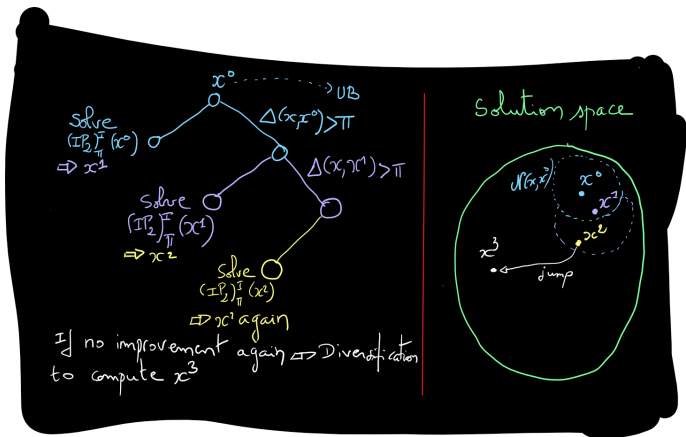 x⁰
UB
Δ(x,x⁰)>π
Solve
(IP₂)ᴵπ(x⁰)
⇨ x¹
Δ(x,x¹)>π
Solve
(IP₂)ᴵπ(x¹)
⇨ x²
Solve
(IP₂)ᴵπ(x²)
⇨ x² again
If no improvement again ⇨ Diversification
to compute x³
Solution space
N(x,x⁰)
x⁰
x¹
x²
x³
jump